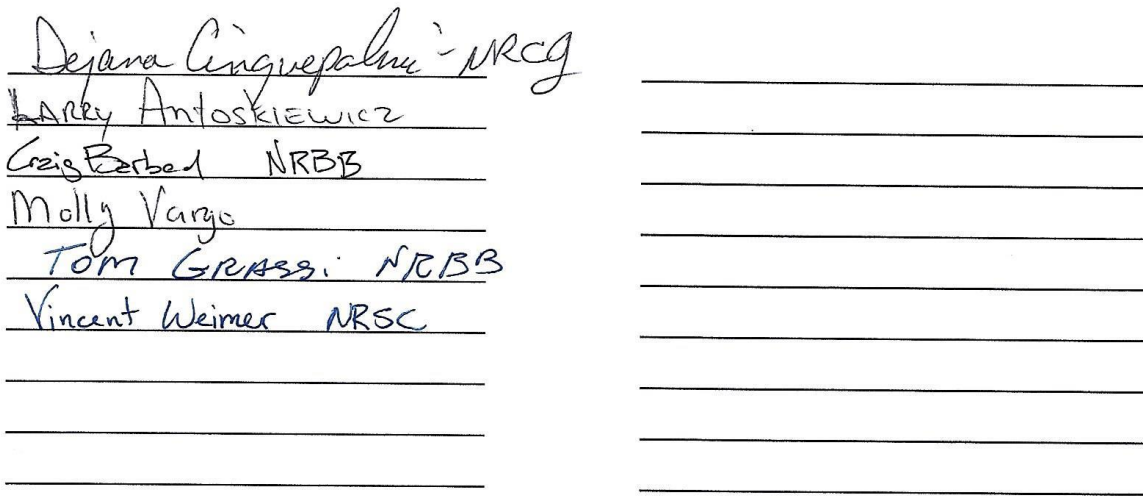 Dejana Cinquepalmi - NRCG
LARRY ANTOSKIEWICZ
Craig Barbad NRBB
Molly Vargo
TOM GRASSi NRBB
Vincent Weimer NRSC